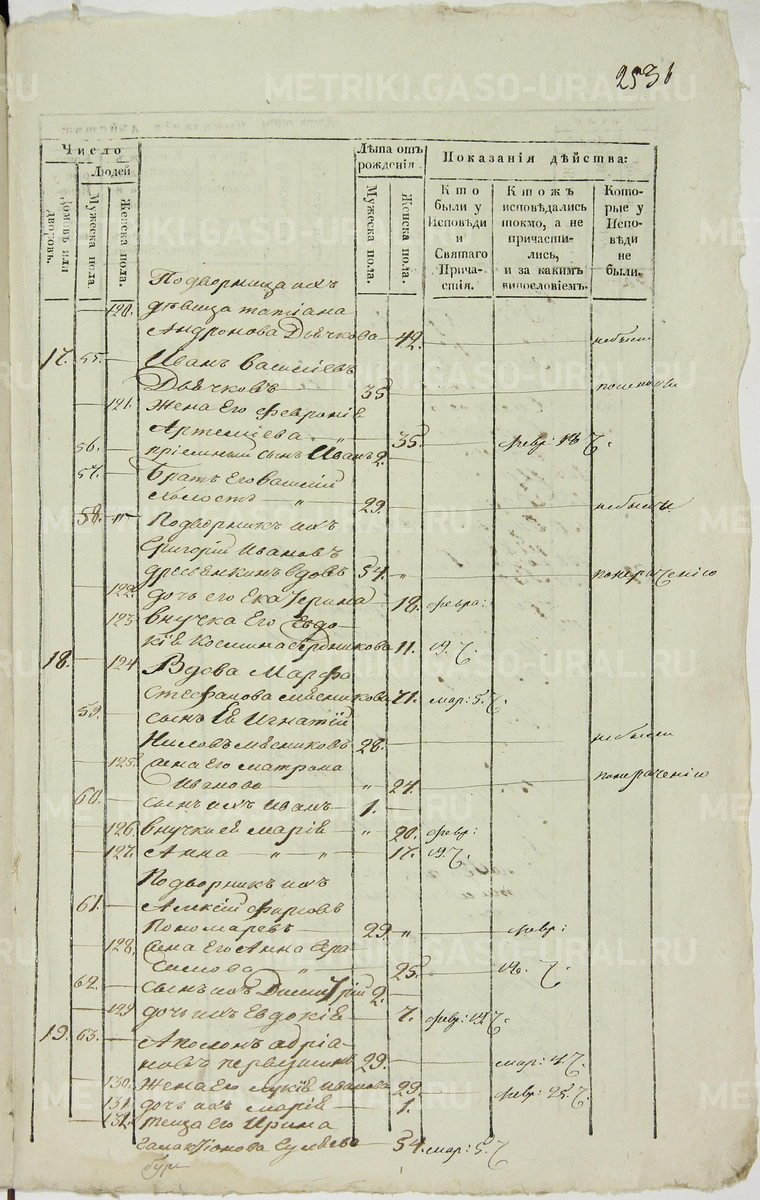 253 б
METRIKI.GASO-URAL.RU
Число
Людей
Домовъ или дворовъ.
Мужеска пола.
Женска пола.
Лѣта отъ рожденія
Мужеска пола.
Женска пола.
Показанія дѣйства:
Кто были у Исповѣди и Святаго Причастія.
Кто жъ исповѣдались токмо, а не причастились, и за какимъ винословіемъ.
Которые у Исповѣди не были.
Подворница ихъ
120. дѣвица татіана
Андронова Дьячкова 42. не были
17. 55. Иванъ Василіевъ
Дьячковъ 35
121. жена Его Февронія
Артеміева 35. февр: 18 Ч.
56. пріемный сынъ Иванъ 2.
57. братъ Его Василій
холостъ 29. не были
58. Подворникъ ихъ
Григорій Ивановъ
вдовъ 54. по нераченію
122. дочь его Екатерина 18. февра:
123 внучка Его Евдо-
кія Космина 11. 19. Ч.
18. 124 Вдова Марфа
Стефанова Мясникова 71. мар: 5. Ч.
59. сынъ Ея Игнатій
Ниловъ Мясниковъ 28. не были
125. жена Его матрона
Иванова 24. по нераченію
60. сынъ ихъ Иванъ 1.
126. внучки ея марія 20. февр:
127. Анна 17. 19. Ч.
Подворникъ ихъ
61. Алексій Фирсовъ
Пономаревъ 29. февр:
128. жена Его Анна Гера-
симова 25. 18. Ч.
62. сынъ ихъ Димитрій 2.
129 дочь ихъ Евдокія 7. февр: 19 Ч.
19. 63. Аполонъ адріа-
новъ первушинъ 29. мар: 4. Ч.
130. жена Его Ивановна 29. февр: 25. Ч.
131. дочь ихъ марія 1.
131. теща Его Ирина
Галактіонова 54. мар: 5. Ч